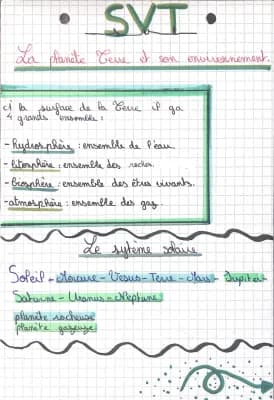 SVT
La planète Terre et son environnement.
à la surface de la Terre il y a
4 grands ensemble :
- hydrosphère : ensemble de l'eau.
- litosphère : ensemble des roches.
- biosphère : ensemble des êtres vivants.
- atmosphère : ensemble des gaz.
Le sytème solaire
Soleil - Mercure - Venus - Terre - Mars - Jupiter -
Saturne - Uranus - Neptune
planète rocheuse
planète gazeuse